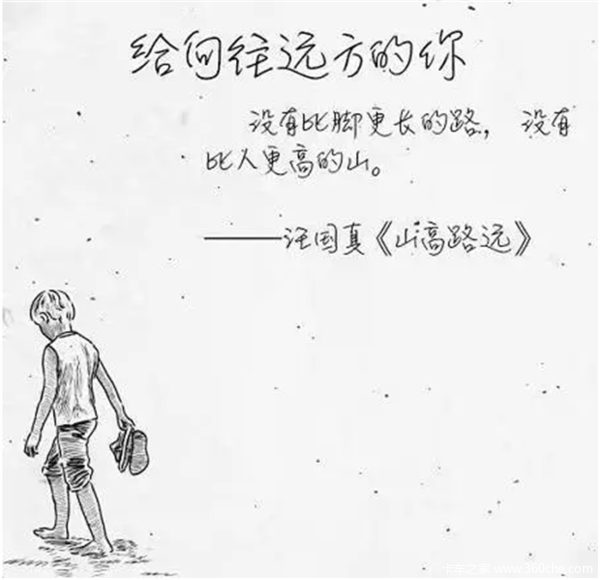 给向往远方的你
没有比脚更长的路， 没有
比人更高的山。
——汪国真《山高路远》
卡车之家 www.360che.com